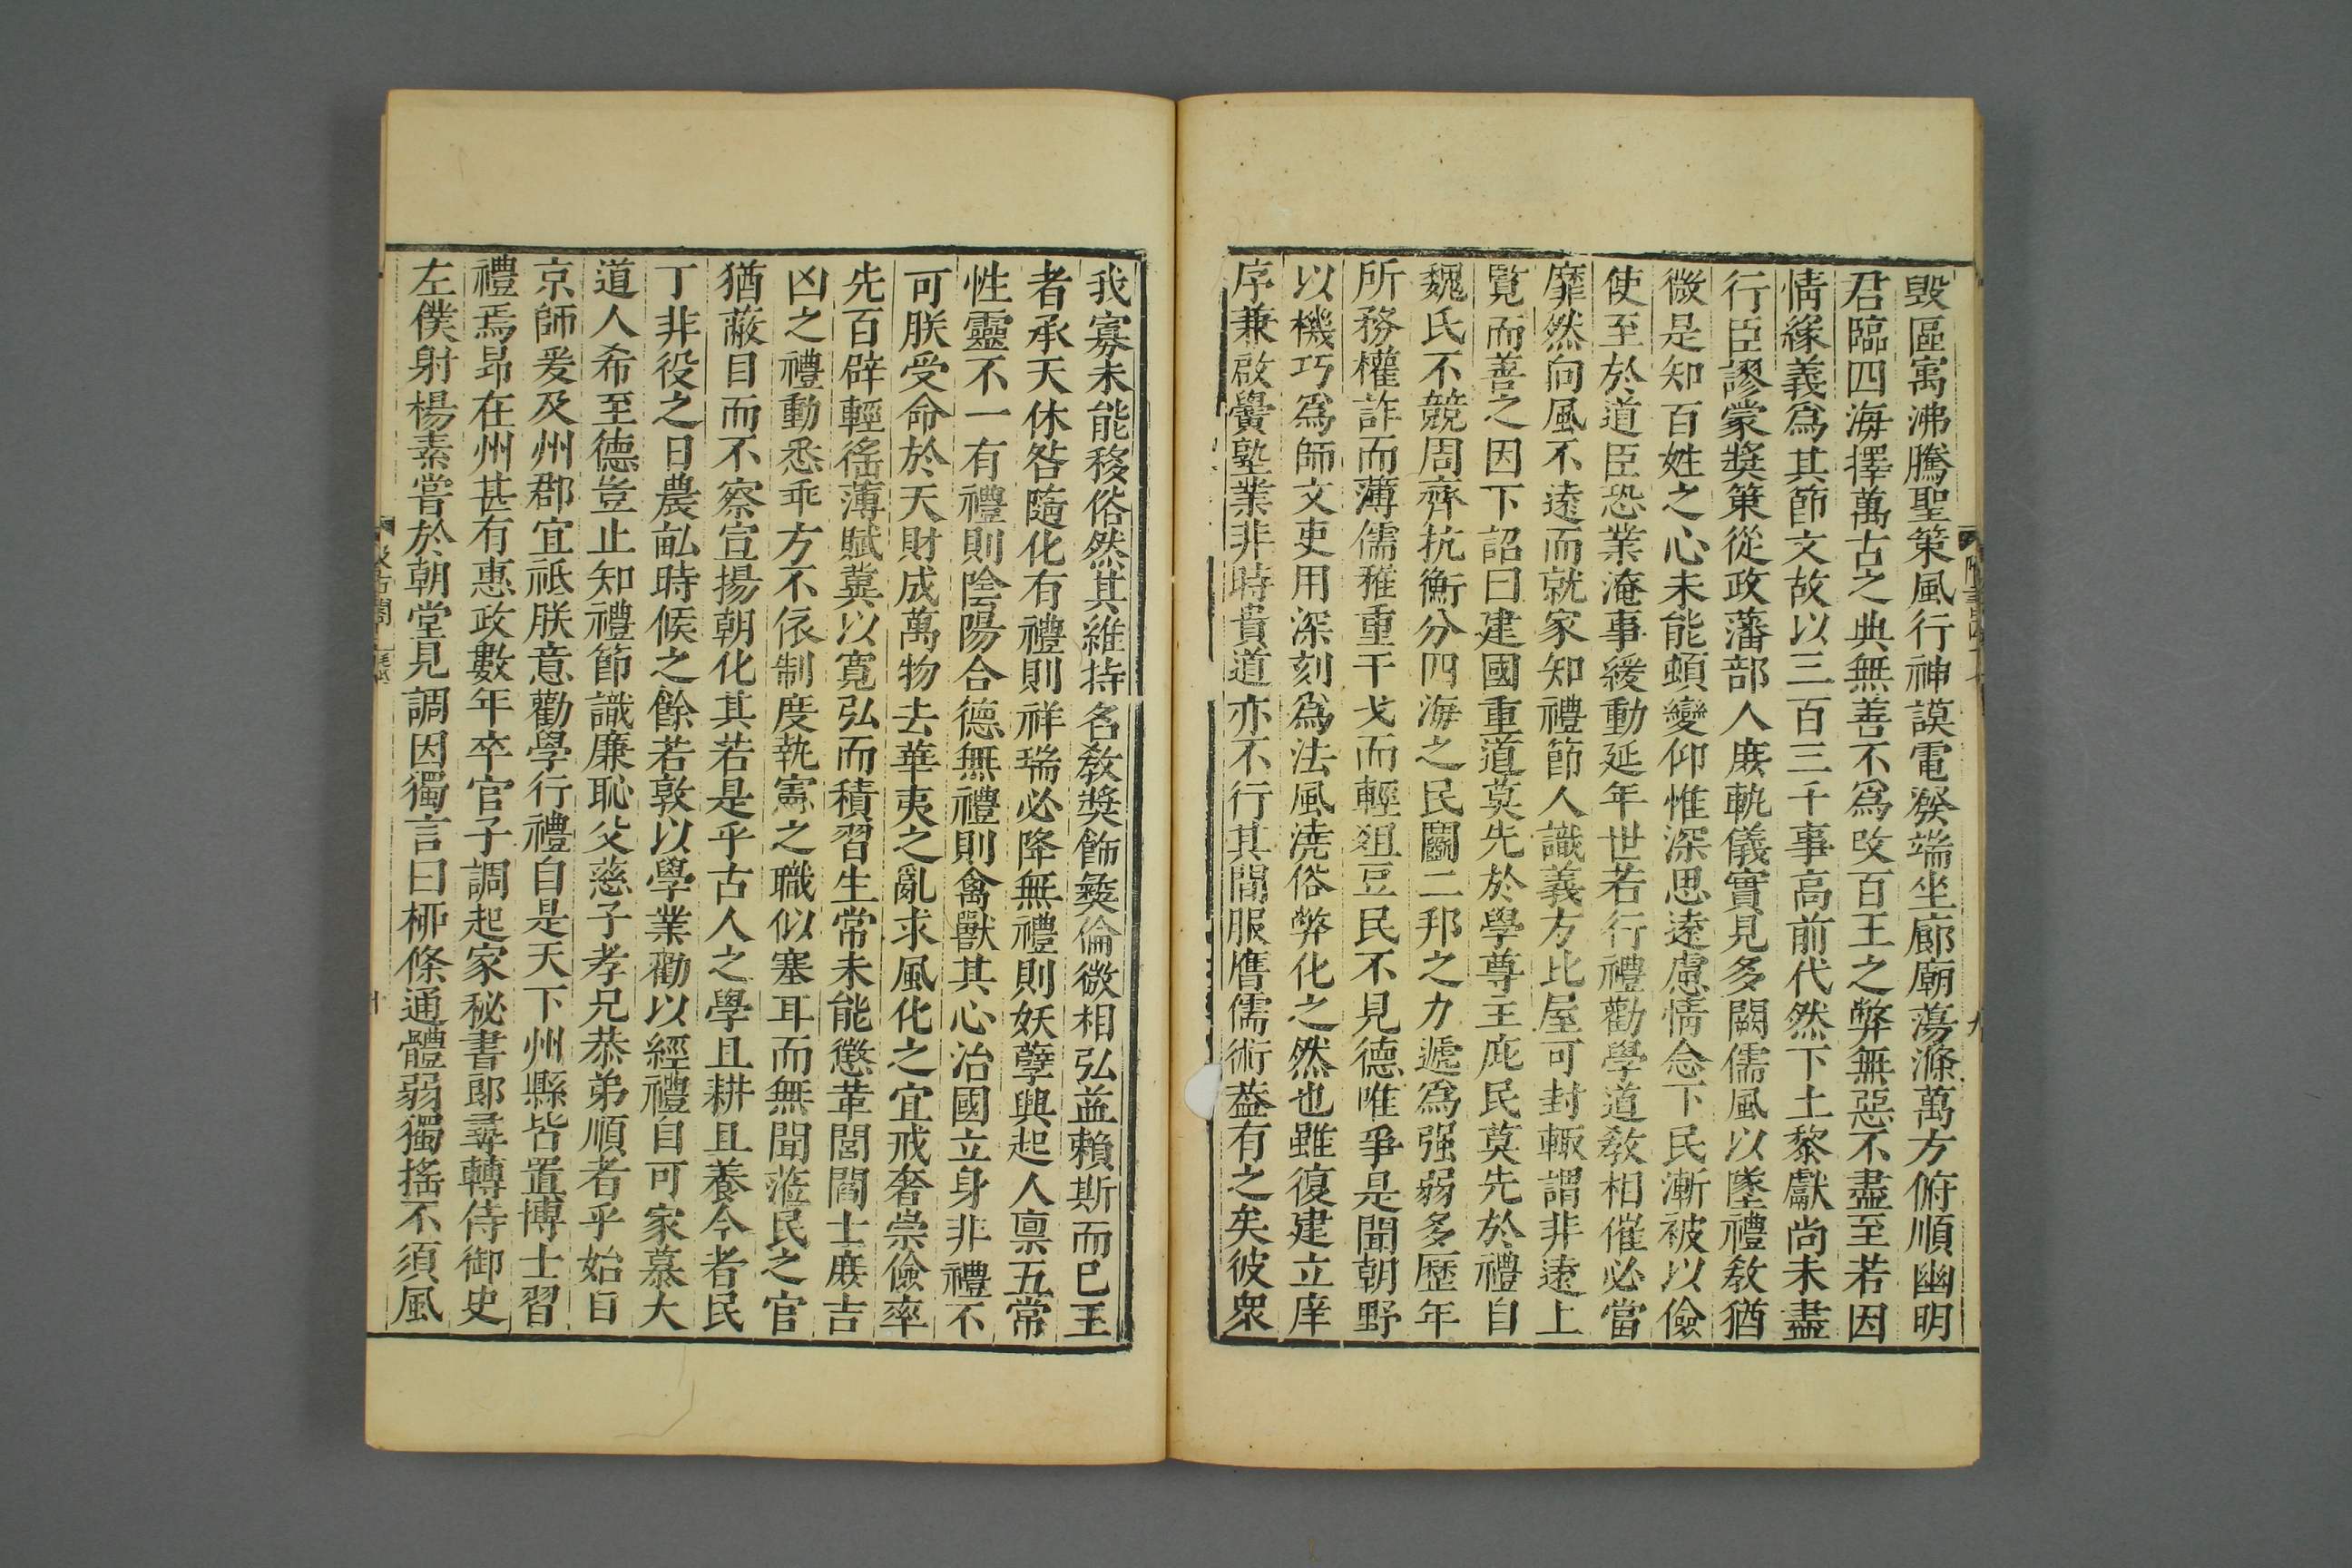 毀區寓沸騰聖策風行神謨電發端坐廊廟蕩滌萬方俯順幽明
君臨四海擇萬古之典無善不爲改百王之弊無惡不盡至若因
情緣義爲其節文故以三百三千事高前代然下土黎獻尚未盡
行臣謬蒙獎策從政藩部人庶軌儀實見多闕儒風以墜禮敎猶
微是知百姓之心未能頓變仰惟深思遠慮情念下民漸被以儉
使至於道臣恐業淹事緩動延年世若行禮勸學道敎相催必當
靡然向風不遠而就家知禮節人識義方比屋可封輙謂非遠上
覽而善之因下詔曰建國重道莫先於學尊主庇民莫先於禮自
魏氏不競周齊抗衡分四海之民鬭二邦之力遞爲强弱多歷年
所務權詐而薄儒雅重干戈而輕俎豆民不見德唯爭是聞朝野
以機巧爲師文吏用深刻爲法風澆俗弊化之然也雖復建立庠
序兼啟黌塾業非時貴道亦不行其間服膺儒術葢有之矣彼衆
我寡未能移俗然其維持名敎獎飾彜倫微相弘益賴斯而已王
者承天休咎隨化有禮則祥瑞必降無禮則妖孽興起人禀五常
性靈不一有禮則陰陽合德無禮則禽獸其心治國立身非禮不
可朕受命於天財成萬物去華夷之亂求風化之宜戒奢崇儉率
先百辟輕徭薄賦冀以寬弘而積習生常未能懲革閭閻士庶吉
凶之禮動悉乖方不依制度執憲之職似塞耳而無聞蒞民之官
猶蔽目而不察宣揚朝化其若是乎古人之學且耕且養今者民
丁非役之日農畝時候之餘若敦以學業勸以經禮自可家慕大
道人希至德豈止知禮節識廉恥父慈子孝兄恭弟順者乎始自
京師爰及州郡宜祇朕意勸學行禮自是天下州縣皆置博士習
禮焉昂在州甚有惠政數年卒官子調起家秘書郎尋轉侍御史
左僕射楊素嘗於朝堂見調因獨言曰柳條通體弱獨搖不須風